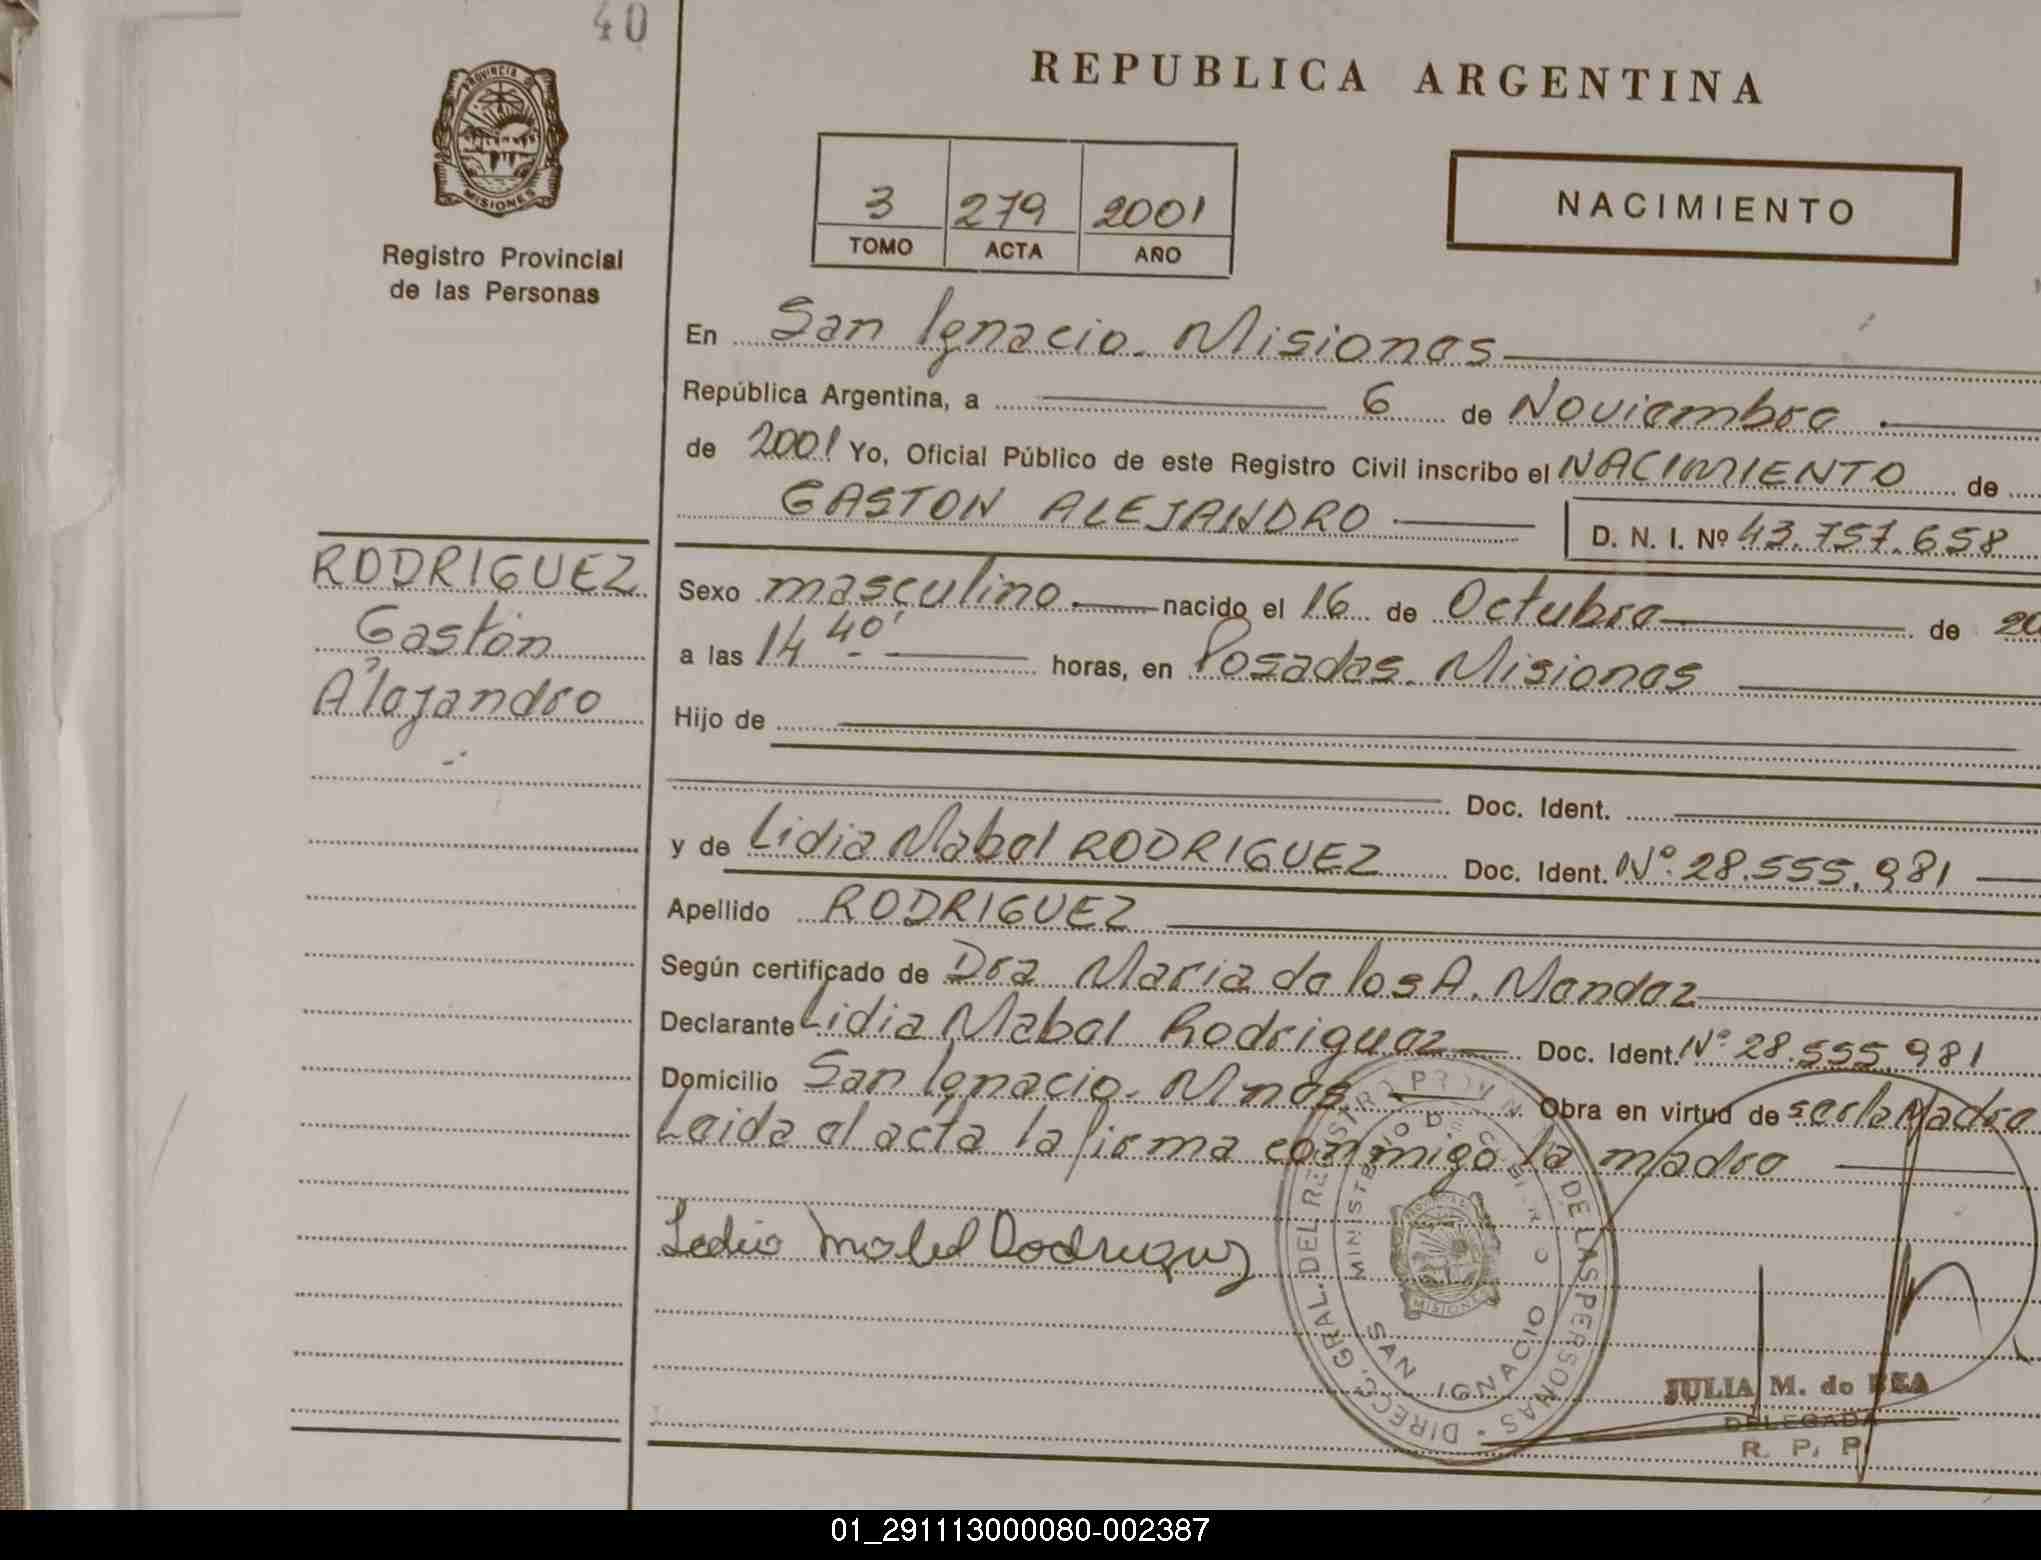 40
REPUBLICA ARGENTINA
PROVINCIA DE MISIONES
3 279 2001
TOMO ACTA AÑO
NACIMIENTO
Registro Provincial
de las Personas
En San Ignacio. Misiones
República Argentina, a 6 de Noviembre
de 2001 Yo, Oficial Público de este Registro Civil inscribo el NACIMIENTO de
GASTON ALEJANDRO D. N. I. Nº 43.757.658
RODRIGUEZ
Gastón
Alejandro
Sexo masculino nacido el 16 de Octubre de 20
a las 14 40' horas, en Posadas. Misiones
Hijo de
Doc. Ident.
y de Lidia Mabel RODRIGUEZ Doc. Ident. Nº 28.555.981
Apellido RODRIGUEZ
Según certificado de Dra Maria de los A. Mendez
Declarante Lidia Mabel Rodriguez Doc. Ident. Nº 28.555.981
Domicilio San Ignacio. Mnes. Obra en virtud de ser la Madre
Leida el acta la firma conmigo la madre
Mabel Rodriguez
DIRECC. GRAL. DEL REGISTRO PROVIN DE LAS PERSONAS
MINISTERIO DE GOBIERNO
MISIONES
SAN IGNACIO
JULIA M. de BEA
DELEGADA
R. P. P.
01_291113000080-002387